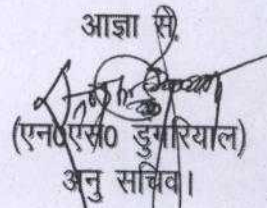 आज्ञा से,
(एन0एस0 डुंगरियाल)
अनु सचिव।